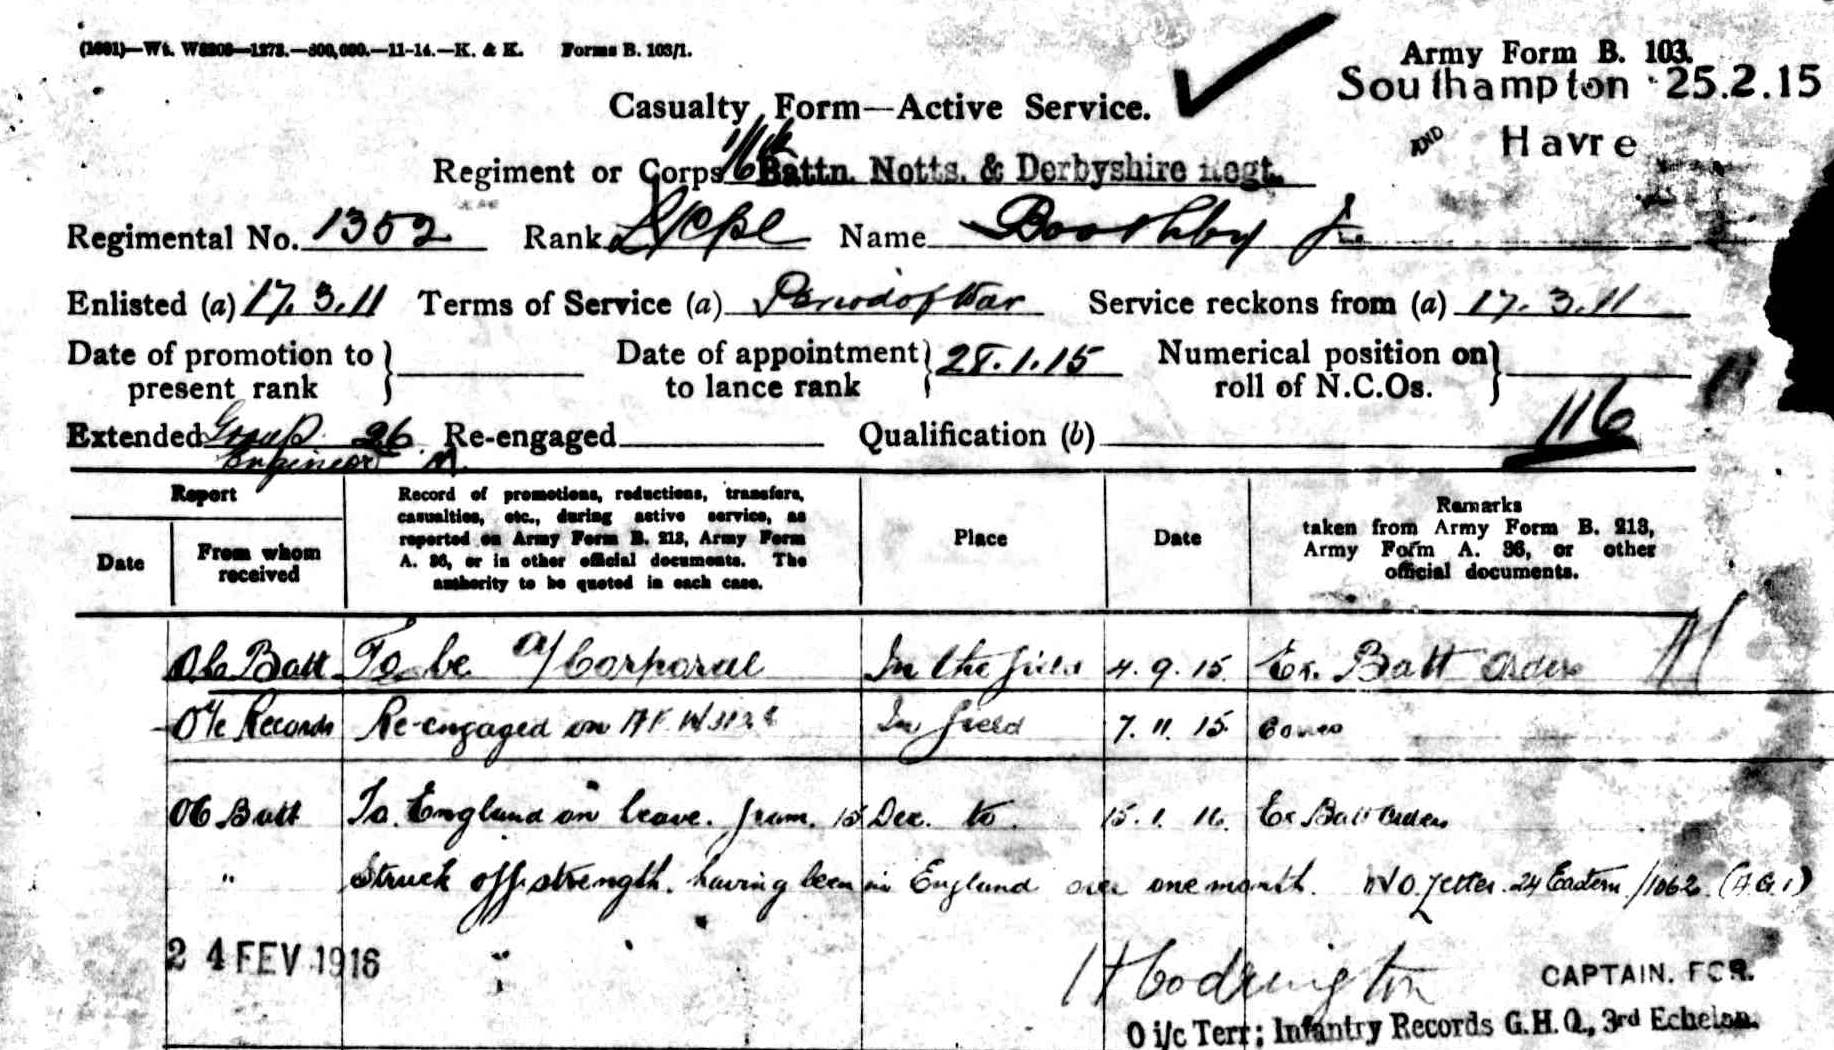 (1691)—Wt. W8208—1273.—300,000.—11-14.—K. & K. Forms B. 103/1.
Army Form B. 103.
Southampton 25.2.15
AND Havre
Casualty Form—Active Service.
Regiment or Corps 1/6th Battn. Notts. & Derbyshire Regt.
Regimental No. 1352 Rank L/Cpl Name Boothby J.
Enlisted (a) 17.3.11 Terms of Service (a) Period of War Service reckons from (a) 17.3.11
Date of promotion to present rank } Date of appointment to lance rank } 28.1.15 Numerical position on roll of N.C.Os. }
116
Extended Group 26 Re-engaged Qualification (b)
Engineer
Report
Date
From whom received
Record of promotions, reductions, transfers,
casualties, etc., during active service, as
reported on Army Form B. 213, Army Form
A. 36, or in other official documents. The
authority to be quoted in each case.
Place
Date
Remarks
taken from Army Form B. 213,
Army Form A. 36, or other
official documents.
OC Batt To be a/Corporal In the field 4.9.15 Ex. Batt Orders
O i/c Records Re-engaged on In field 7.11.15
OC Batt To England on leave. from. 15 Dec. to 15.1.16. Ex Batt Orders
" Struck off strength. having been in England over one month. WO. Letter. 24 Eastern/1062. (A.G.1)
24 FEV 1916
H Codrington CAPTAIN. FOR.
O i/c Terr; Infantry Records G.H.Q., 3rd Echelon.